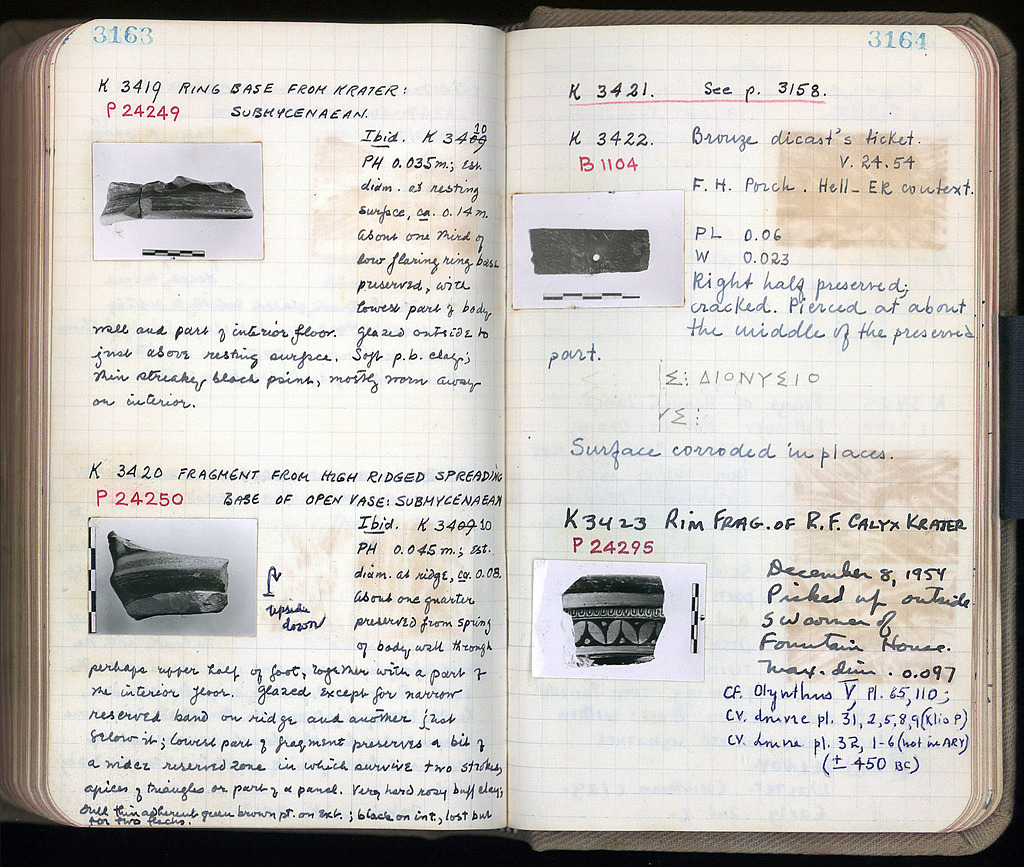 3163
K 3419 RING BASE FROM KRATER:
P 24249 SUBMYCENAEAN.
Ibid. K 3409 10
PH 0.035m.; Est.
diam. at resting
surface, ca. 0.14m.
About one third of
low flaring ring base
preserved, with
lowest part of body
wall and part of interior floor. glazed outside to
just above resting surface. Soft p.b. clay;
thin streaky black paint, mostly worn away
on interior.
K 3420 FRAGMENT FROM HIGH RIDGED SPREADING
P 24250 BASE OF OPEN VASE: SUBMYCENAEAN
Ibid. K 3409 10
PH 0.045m.; Est.
diam. at ridge, ca. 0.08.
About one quarter
preserved from spring
of body wall through
upside
down
perhaps upper half of foot, together with a part of
the interior floor. Glazed except for narrow
reserved band on ridge and another just
below it; lowest part of fragment preserves a bit of
a wider reserved zone in which survive two strokes,
apices of triangles or part of a panel. Very hard rosy buff clay;
dull thin adherent green brown pt. on ext.; black on int., lost but
for two flecks.
3164
K 3421. See p. 3158.
K 3422. Bronze dicast's ticket.
B 1104 V. 24.54
F. H. Porch. Hell-ER context.
PL 0.06
W 0.023
Right half preserved;
cracked. Pierced at about
the middle of the preserved
part.
Σ: ΔΙΟΝΥΣΙΟ
ΥΣ:
Surface corroded in places.
K 3423 RIM FRAG. OF R.F. CALYX KRATER
P 24295
December 8, 1954
Picked up outside
SW corner of
Fountain House.
Max. dim. 0.097
CF. Olynthus V, Pl. 65, 110;
CV. pl. 31, 2,5,8,9 (Klio P)
CV. pl. 32, 1-6 (not in ARV)
(± 450 BC)